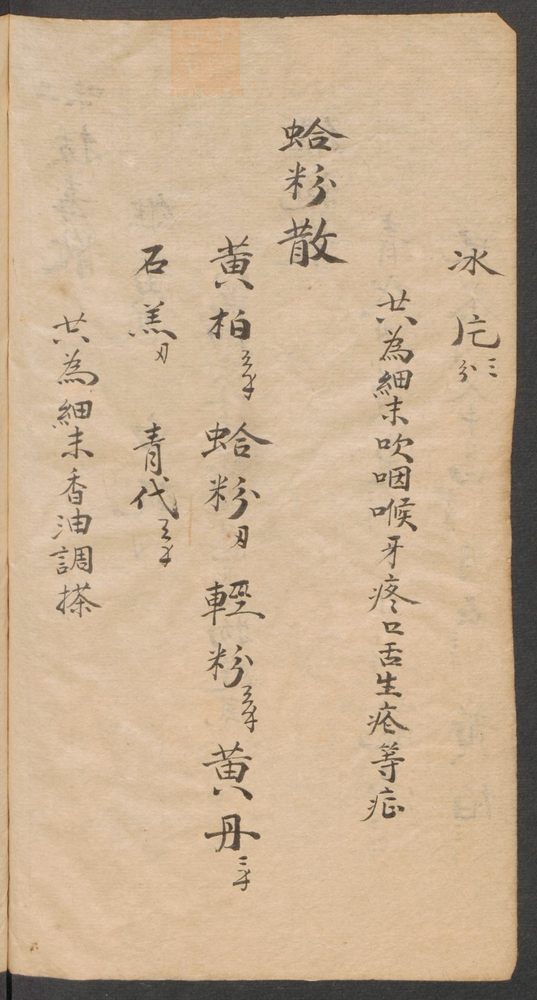 冰片三分
共為細末吹咽喉牙疼口舌生疮等症
蛤粉散
黄柏五錢 蛤粉刄 輕粉五錢 黄丹三錢
石羔刄 青代三錢
共為細末香油調搽